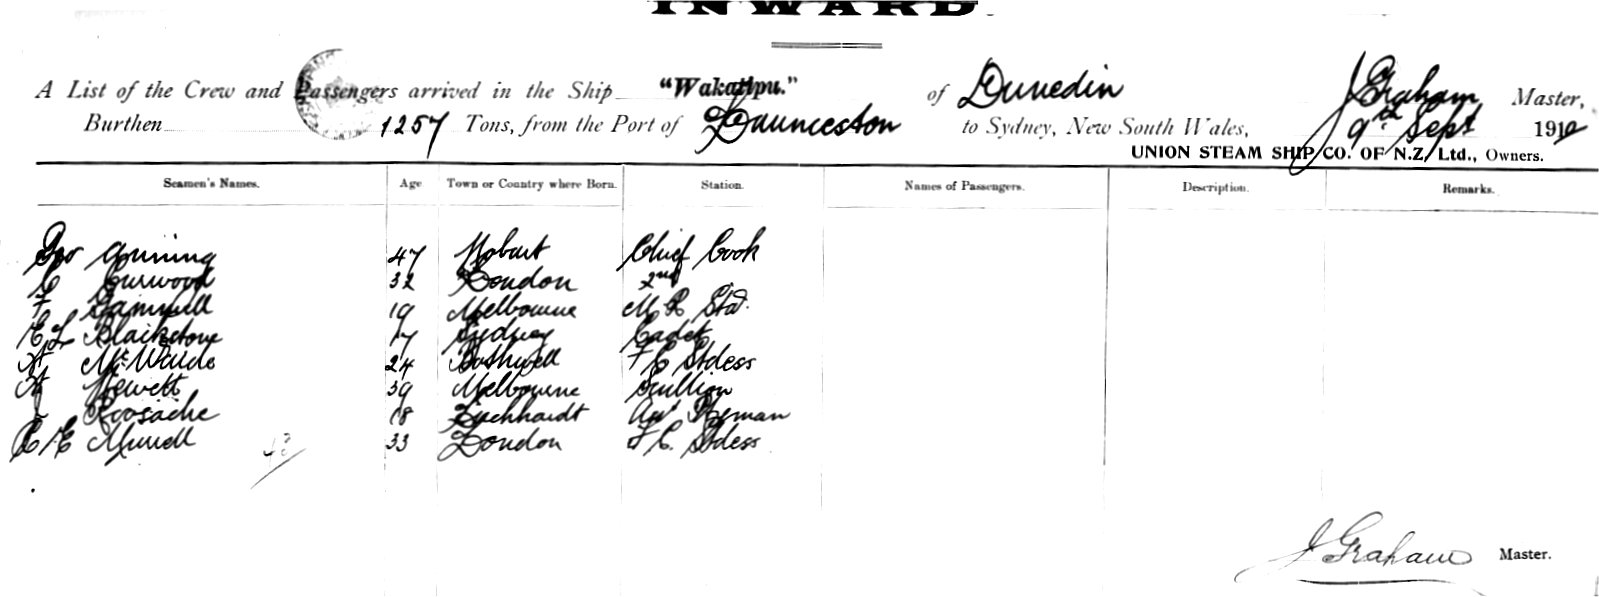 INWARD
A List of the Crew and Passengers arrived in the Ship "Wakatipu." of Dunedin J Graham Master,
Burthen 1257 Tons, from the Port of Launceston to Sydney, New South Wales, 9th Sept 1910
UNION STEAM SHIP CO. OF N.Z. Ltd., Owners.
Seamen's Names. Age Town or Country where Born. Station. Names of Passengers. Description. Remarks.
Geo Gunning 47 Hobart Chief Cook
C Curwood 32 London 2nd
F Gammell 19 Melbourne M R Std.
E L Blackstone 17 Sydney Cadet
A McWade 24 Bothwell F C Stdess
A Hewett 39 Melbourne Scullion
18 Leichhardt Fireman
C E Murrell 33 London F C. Stdess
43
J Graham Master.